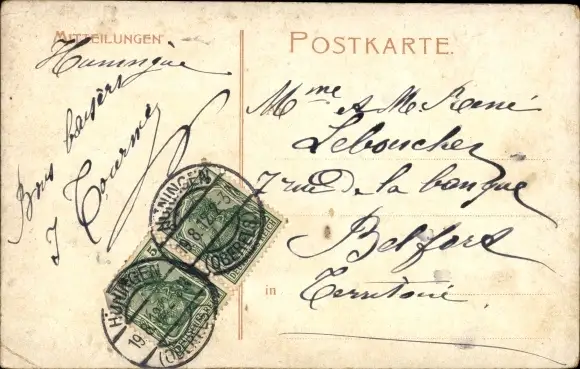 MITTEILUNGEN
Huningue
Bons baisers
J Tourme
POSTKARTE.
Mme & M. René
Leboucher
7 rue de la banque
Belfort
in Territoire
HÜNINGEN
(OBERELS)
HÜNINGEN
19.8.12
(OBERELS)
5
DEUTSCHES REICH